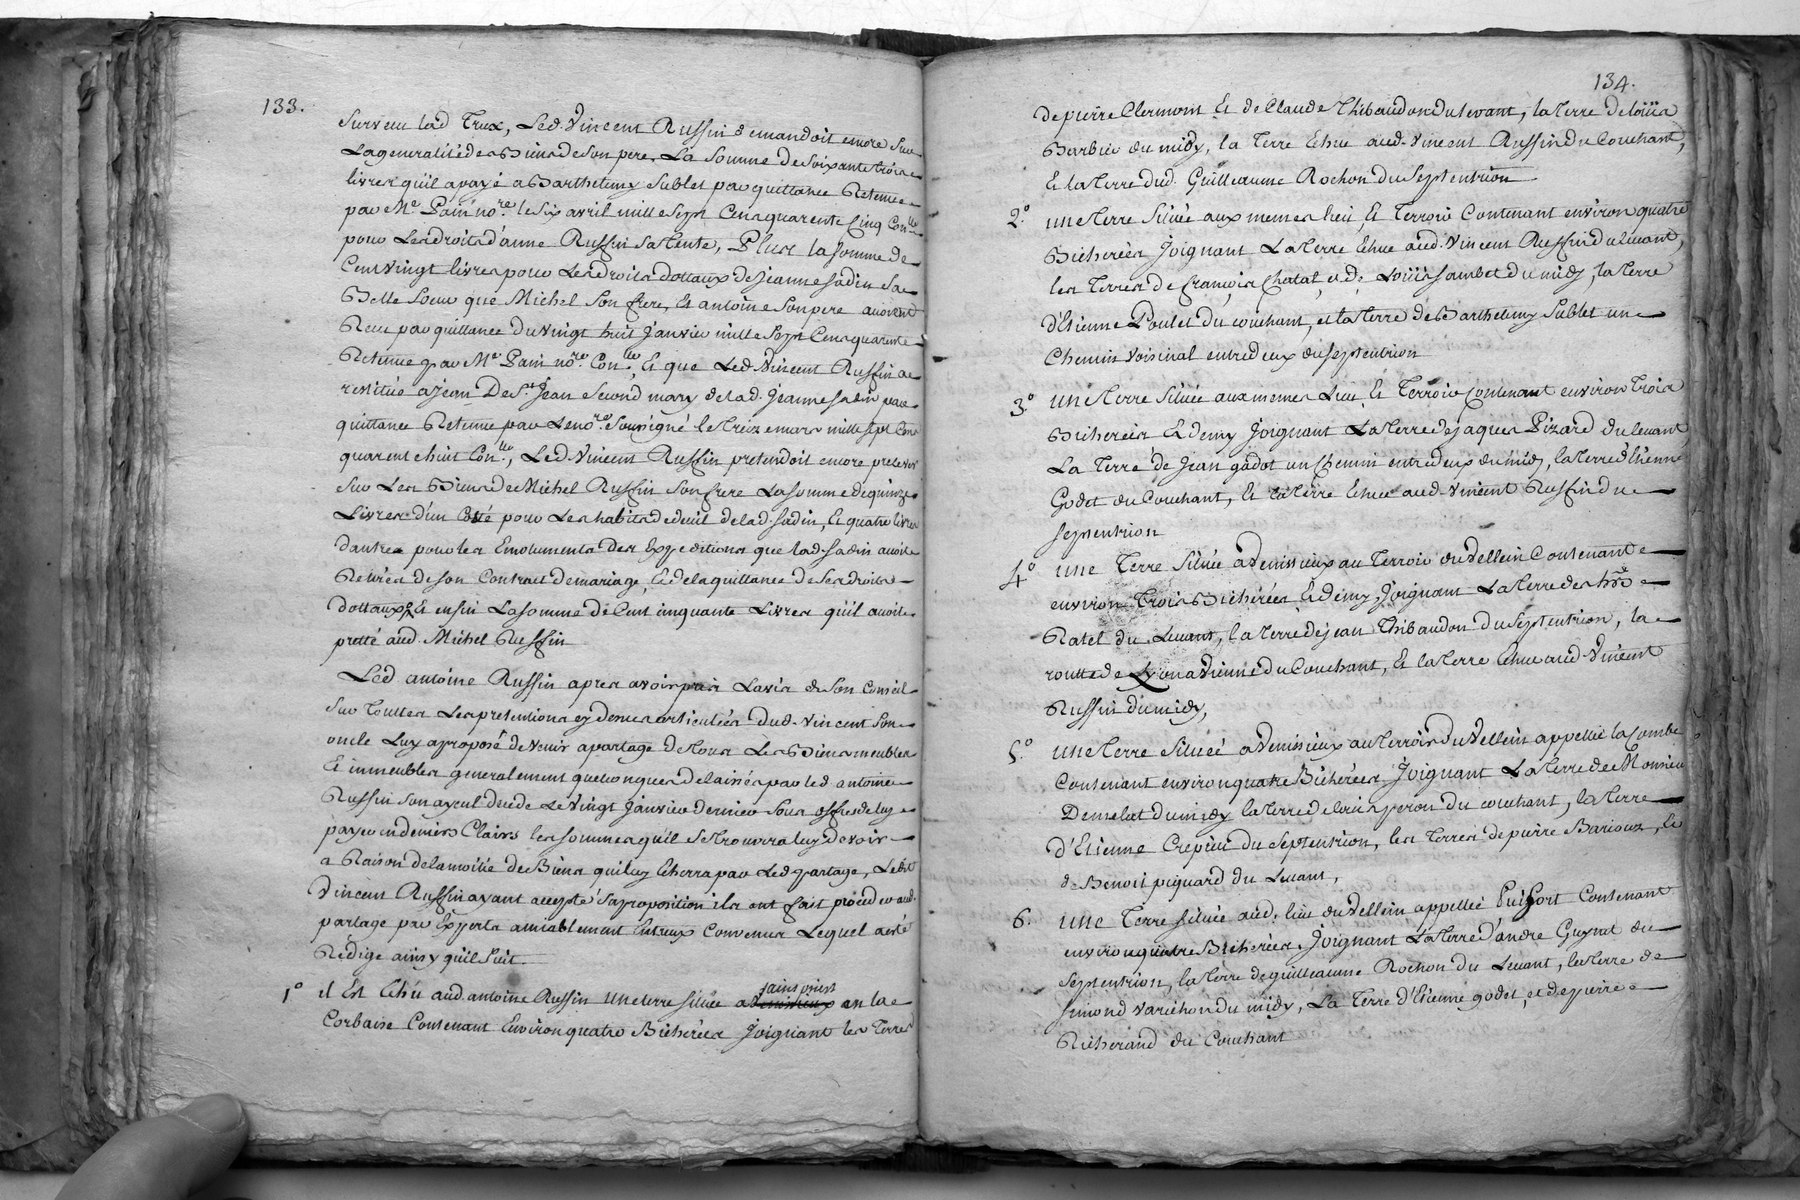 133.
Surveu lad Trux, Led. Vincent Ruffin demandoit encore sur
La generalité des Biens de son pere, La Somme de Soixante trois
livres qu'il a payé a Barthelemy Sublet par quittance Retenue
par Me. Pain nore. le six avril mille Sept Cens quarente Cinq Conlle
pour Les droits d'anne Ruffin sa tente, Plus la somme de
Cent vingt livres pour Les droits dottaux de Jeanne Jadin sa
Belle Soeur que Michel Son frere, Et antoine son pere avoient
Receu par quittance du vingt huit Janvier mille Sept Cens quarente
Retenue par Me. Pain nore. Conlle, Et que Led. Vincent Ruffin a
restitué a Jean De St. Jean second mary de lad. Jeanne Jadin par
quittance Retenue par Le nore. Soussigné le Treize mars mille sept Cens
quarente huit Conlle, Led. Vincent Ruffin pretendoit encore prelever
sur Les Biens de Michel Ruffin son frere La somme de quinze
Livres d'un Costé pour Les habits de deuil de lad. Jadin, Et quatre livres
d'autre pour les Emoluments des Expeditions que lad. Jadin avoit
Retirés de son Contract de mariage, Et de la quittance de Ses droits
dottaux, Et enfin La somme de Cent cinquante Livres qu'il avoit
pretté aud. Michel Ruffin
Led antoine Ruffin apres avoir pris L'avis de son Conseil
Sur Touttes Les pretentions cy dessus articulées dud. Vincent Son
oncle Luy a proposé de venir a partage de tous Les Biens meubles
Et immeubles generalement quelconques delaissés par led antoine
Ruffin son ayeul decedé Le vingt Janvier dernier sous offres de luy
payer in deniers Clairs les sommes qu'il Se trouvera luy devoir
a Raison de la moitié des Biens qui luy Echerra par Led partage, Ledit
Vincent Ruffin ayant accepté sa proposition ils ont fait proceder aud.
partage par Experts amiablement Entreux Convenus Lequel a eté
Redigé ainsy qu'il Suit
1° il Est Echu aud. antoine Ruffin une terre située a Venissieux saint priest en la
Corbaise Contenant Environ quatre Bicherées Joignant les Terres
134.
de pierre Clermont Et de Claude Thibaudon du levant, la terre de Loüis
Barbier du midy, la Terre Echue aud. Vincent Ruffin du Couchant,
Et la terre dud. Guilleaume Rochon du Septentrion
2° une Terre Située aux memes lieu Et Terroir Contenant environ quatre
Bicherées Joignant La terre Echue aud. Vincent Ruffin du levant,
les Terres de françois Chatal, et de Loüis Jambet du midy, la terre
d'Etienne Poulet du couchant, et la terre de Barthelemy Sublet un
Chemin voisinal entredeux du septentrion
3° une Terre Située aux memes Lieu Et Terroir Contenant environ Trois
Bicherées Et demy Joignant La terre de jaques Pizard du levant,
La Terre de Jean godot un Chemin entredeux du midy, la terre d'Etienne
Godet du Couchant, Et la terre Echue aud. Vincent Ruffin du
septentrion
4° une Terre Située a Venissieux au Terroir du Vellein Contenant
environ Trois Bicherées Et demy, Joignant La terre des hrs. de
Ratel du Levant, la terre de jean Thibaudon du Septentrion, la
routte de Lyon a Vienne du Couchant, Et la terre Echue aud. Vincent
Ruffin du midy,
5° une Terre Située a Venissieux au Terroir du Vellein appellée la Combe
Contenant environ quatre Bicherées Joignant La terre de Monsieur
Demelat du midy la terre de louis peron du couchant, la terre
d'Etienne Crepieu du septentrion, les Terres de pierre Bariouz, Et
de Benoit piquard du Levant,
6. une Terre située aud. lieu du Vellein appellée Puisfort Contenant
environ quatre Bicherées, Joignant La terre d'andre Guynet du
Septentrion, la terre de guilleaume Rochon du Levant, la terre de
simond Varichon du midy, La Terre d'Etienne godet, et de pierre
Richerand du Couchant